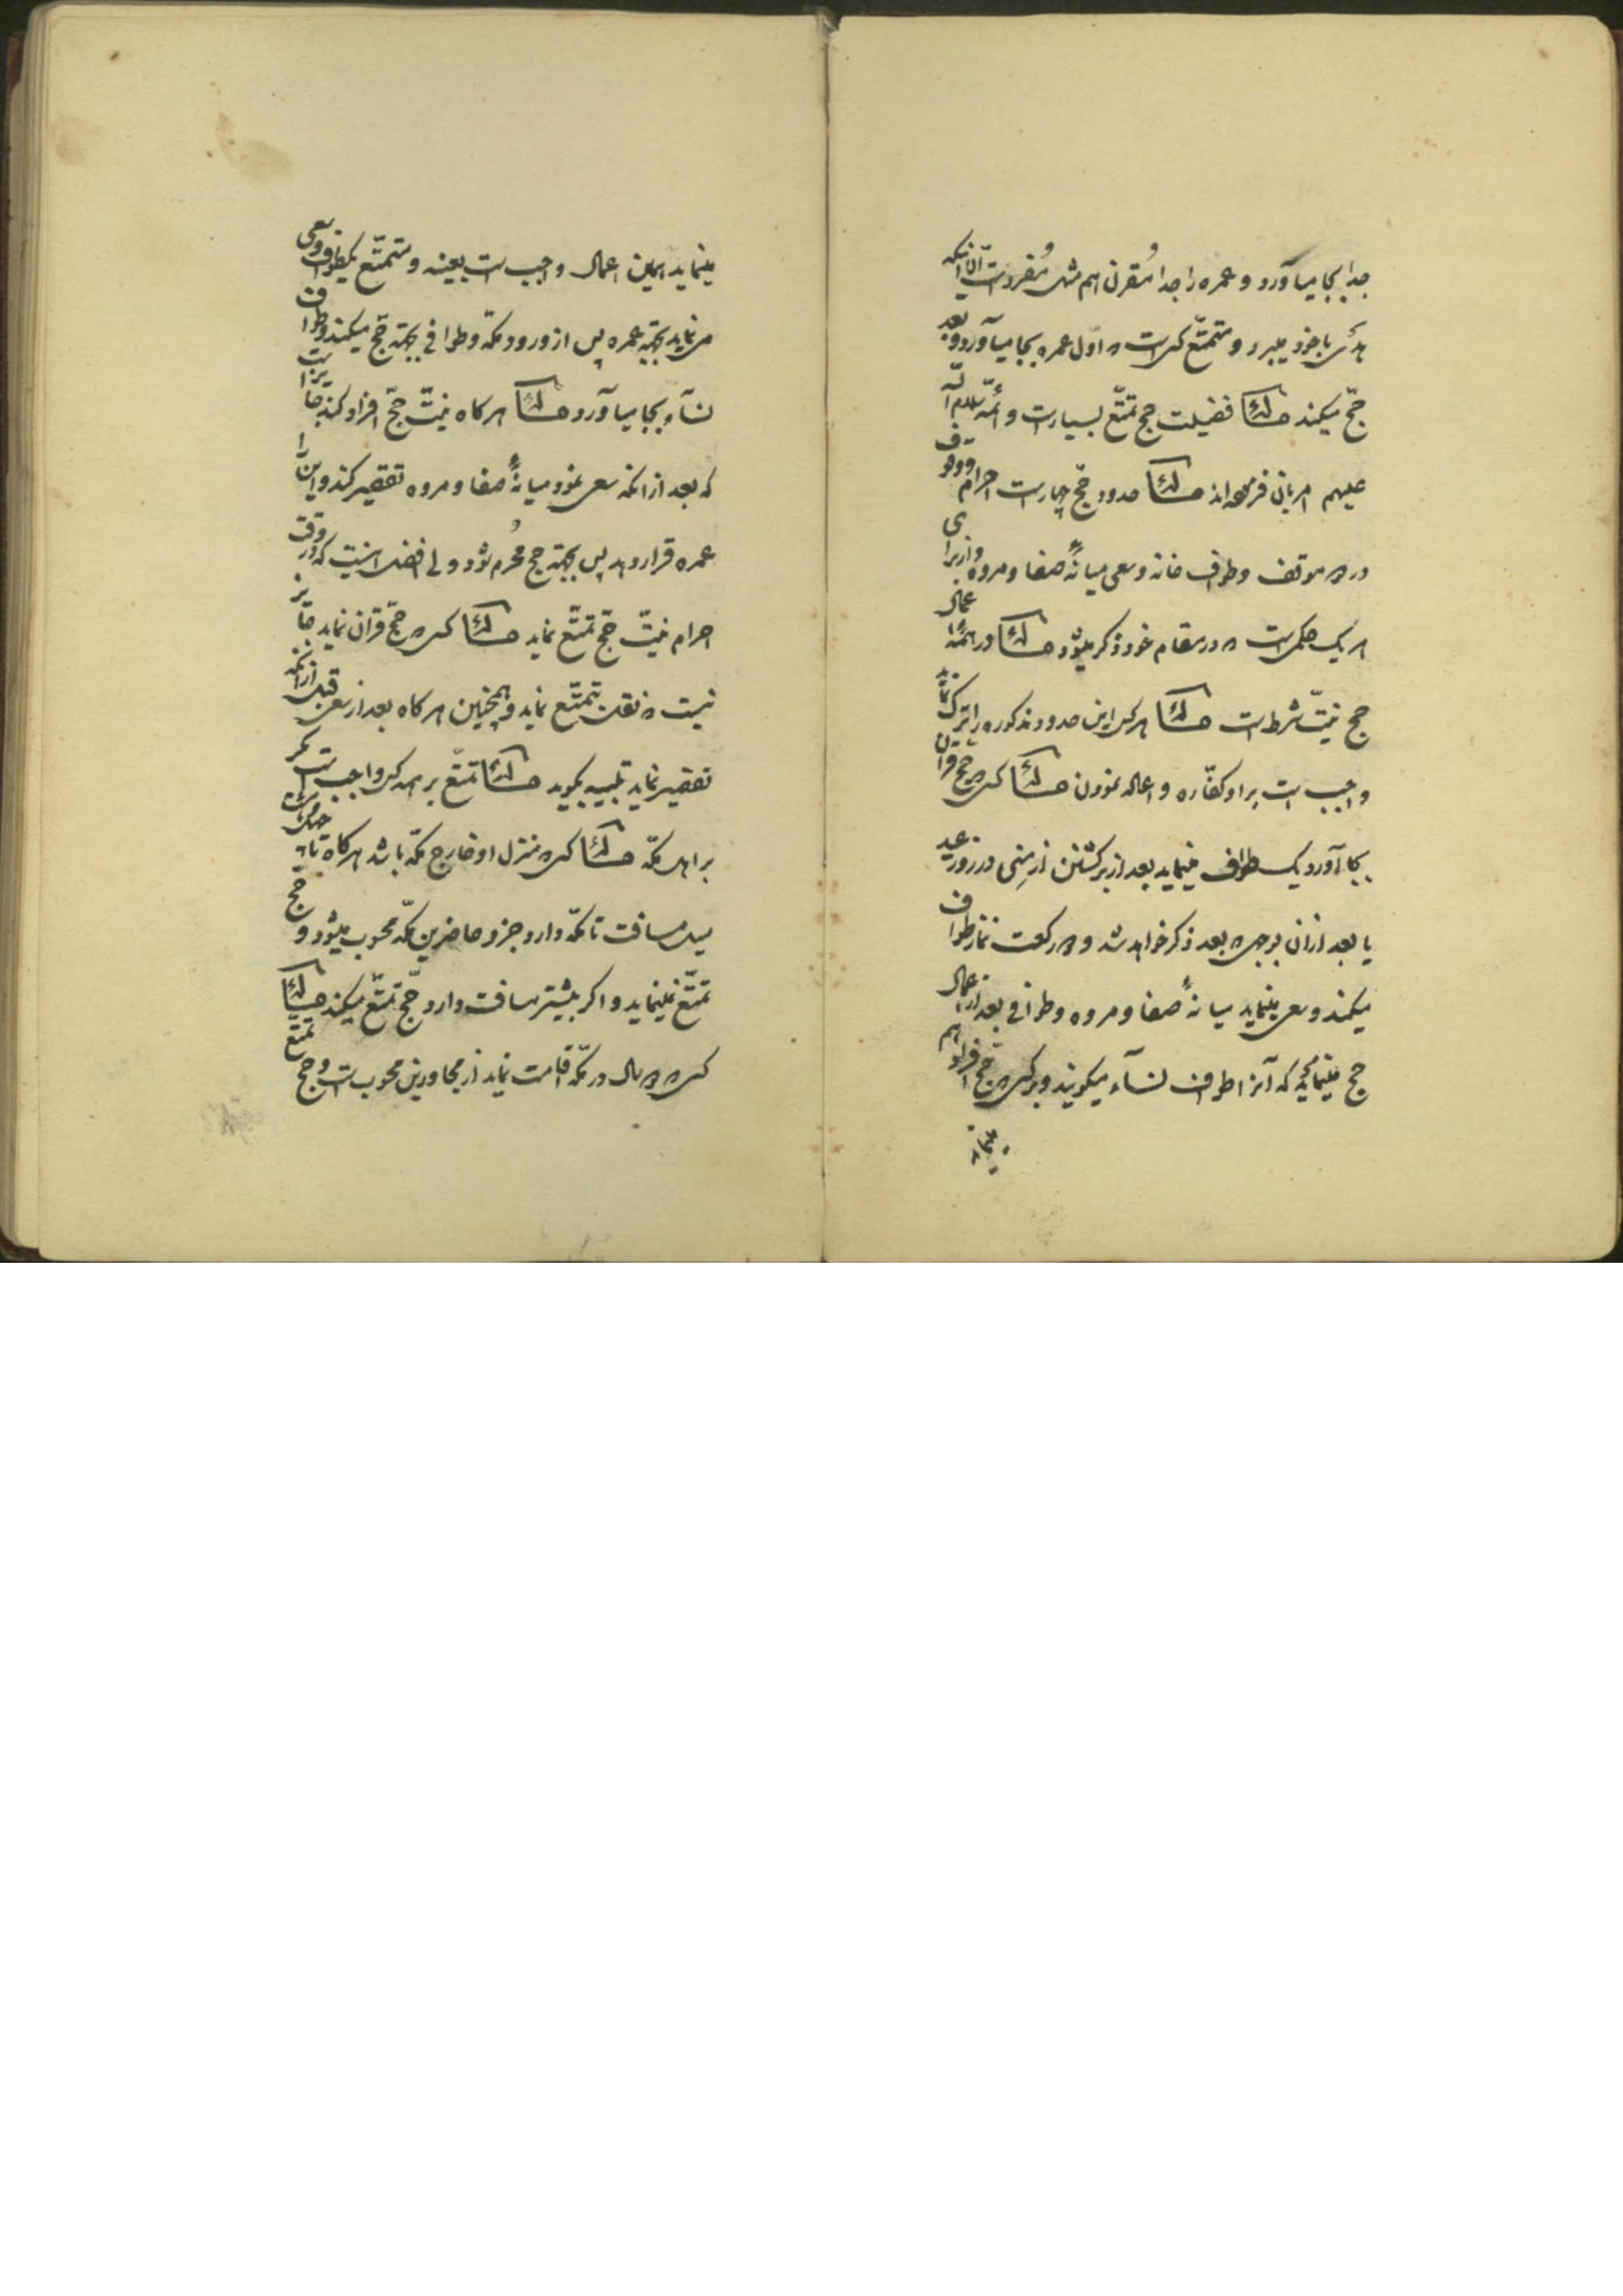 جدا بجا میآورد و عمره را جدا مُقرن هم مثل مُفرد است الّا اینکه
هدی باخود میبرد و متمتّع کسی است که اوّل عمره بجا میآورد و بعد
حجّ میکند مسئله فضیلت حج تمتّع بسیار است و ائمّه سلام اللّه
علیهم امر بان فرموده‌اند مسئله حدود حجّ چهار است احرام و وقوف
در دو موقف و طواف خانه و سعی میانهٔ صفا و مروه و از برای
هر یک حکمی است که در مقام خود ذکر میشود مسئله در همهٔ اعمال
حج نیّت شرط است مسئله هر کس این حدود مذکوره را ترک نماید
واجب است بر او کفّاره و اعاده نمودن مسئله کسی که حج قران
بجا آورد یک طواف مینماید بعد از برگشتن از مِنی در روز عید
یا بعد از آن بوجهی که بعد ذکر خواهد شد و دو رکعت نماز طواف
میکند و سعی مینماید میانهٔ صفا و مروه و طوافی بعد از اعمال
حج مینماید که آنرا طواف نسآء میگویند و بر کسی که حج افراد هم
مینماید
مینماید همین اعمال واجب است بعینه و متمتّع یکطواف و سعی
می نماید بجهة عمره پس از ورود مکّه و طوافی بجهة حجّ میکند و طواف
نسآء بجا میآورد مسئله هرگاه نیّت حجّ افراد کند جایز است
که بعد از آنکه سعی نمود میانهٔ صفا و مروه تقصیر کند و این را
عمره قرار دهد پس بجهة حج مُحرم شود ولی افضل اینست که در وقت
احرام نیّت حجّ تمتّع نماید مسئله کسی که حجّ قران نماید جایز
نیست که نقل بتمتّع نماید و همچنین هرگاه بعد از سعی قبل از آنکه
تقصیر نماید تلبیه بگوید مسئله تمتّع بر همه کس واجب است مگر
بر اهل مکّه مسئله کسی که منزل او خارج مکّه باشد هرگاه تا چهل و هشت
میل مسافت تا مکّه دارد جزو حاضرین مکّه محسوب میشود و حج
تمتّع نمینماید و اگر بیشتر مسافت دارد حجّ تمتّع میکند مسئله
کسی که دو سال در مکّه اقامت نماید از مجاورین محسوب است و حج تمتع